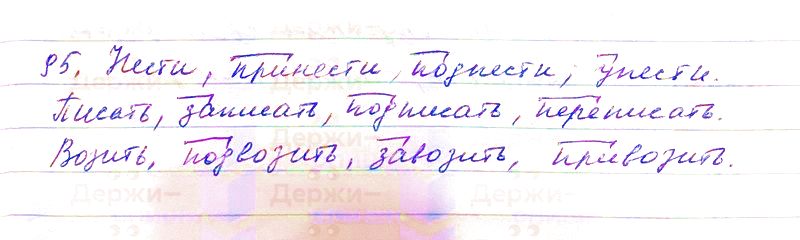 95. Нести, принести, поднести, унести.
Писать, записать, подписать, переписать.
Возить, подвозить, завозить, привозить.
Держи—
Держи—
Держи—
Держи—